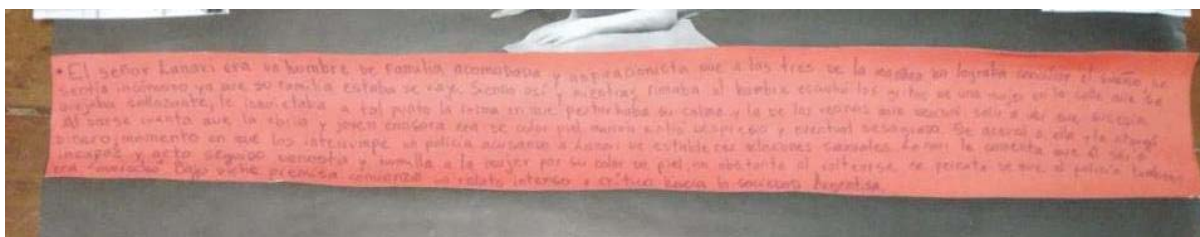 • El señor Lanari era un hombre de familia acomodada y aspiracionista que a las tres de la mañana no lograba conciliar el sueño, se
sentía incómodo ya que su familia estaba de viaje. Siendo así y mientras fumaba el hombre escuchó los gritos de una mujer en la calle que se
quejaba sollozante, le inquietaba a tal punto la forma en que perturbaba su calma y la de los vecinos que decidió salir a ver que sucedía.
Al darse cuenta que la and joven era de color piel marrón sintió desprecio y eventual desagrado. Se acercó a ella y le otorgó
dinero, momento en que los interrumpe un policía acusando a Lanari de establecer relaciones sexuales. Lanari le comenta que él sería
incapaz y acto seguido denosta y humilla a la mujer por su color de piel, no obstante al voltearse se percata de que el policía también
era morocho. Bajo dicha premisa comienza un relato intenso y crítico hacia la sociedad Argentina.